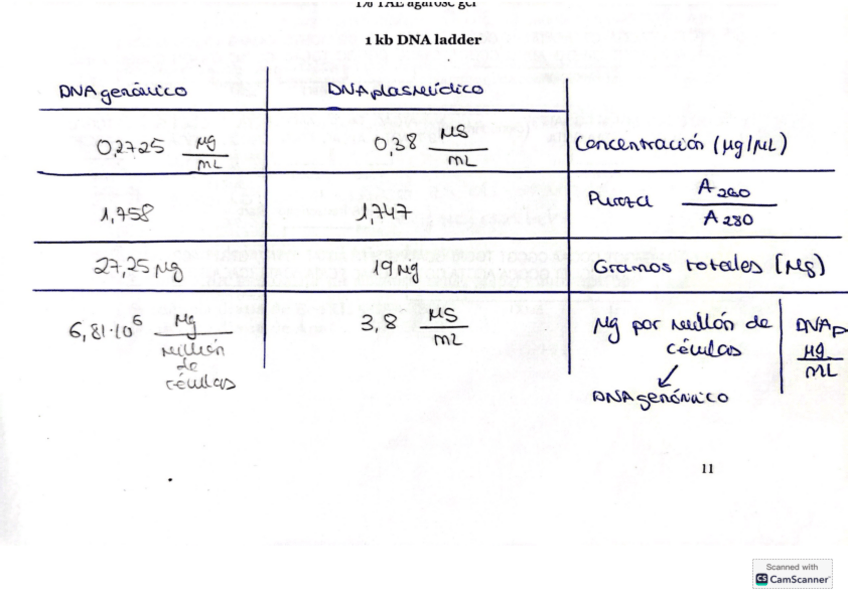 1% TAE agarose gel
1 kb DNA ladder
DNA genómico DNA plasmídico
0,2725 µg/mL 0,38 µg/mL Concentración (µg/µL)
1,758 1,747 Pureza A260/A280
27,25 µg 19 µg Gramos totales (µg)
6,81·10⁶ µg/millón de células 3,8 µg/mL µg por millón de células DNAp µg/mL
DNA genómico
11
Scanned with
CS CamScanner